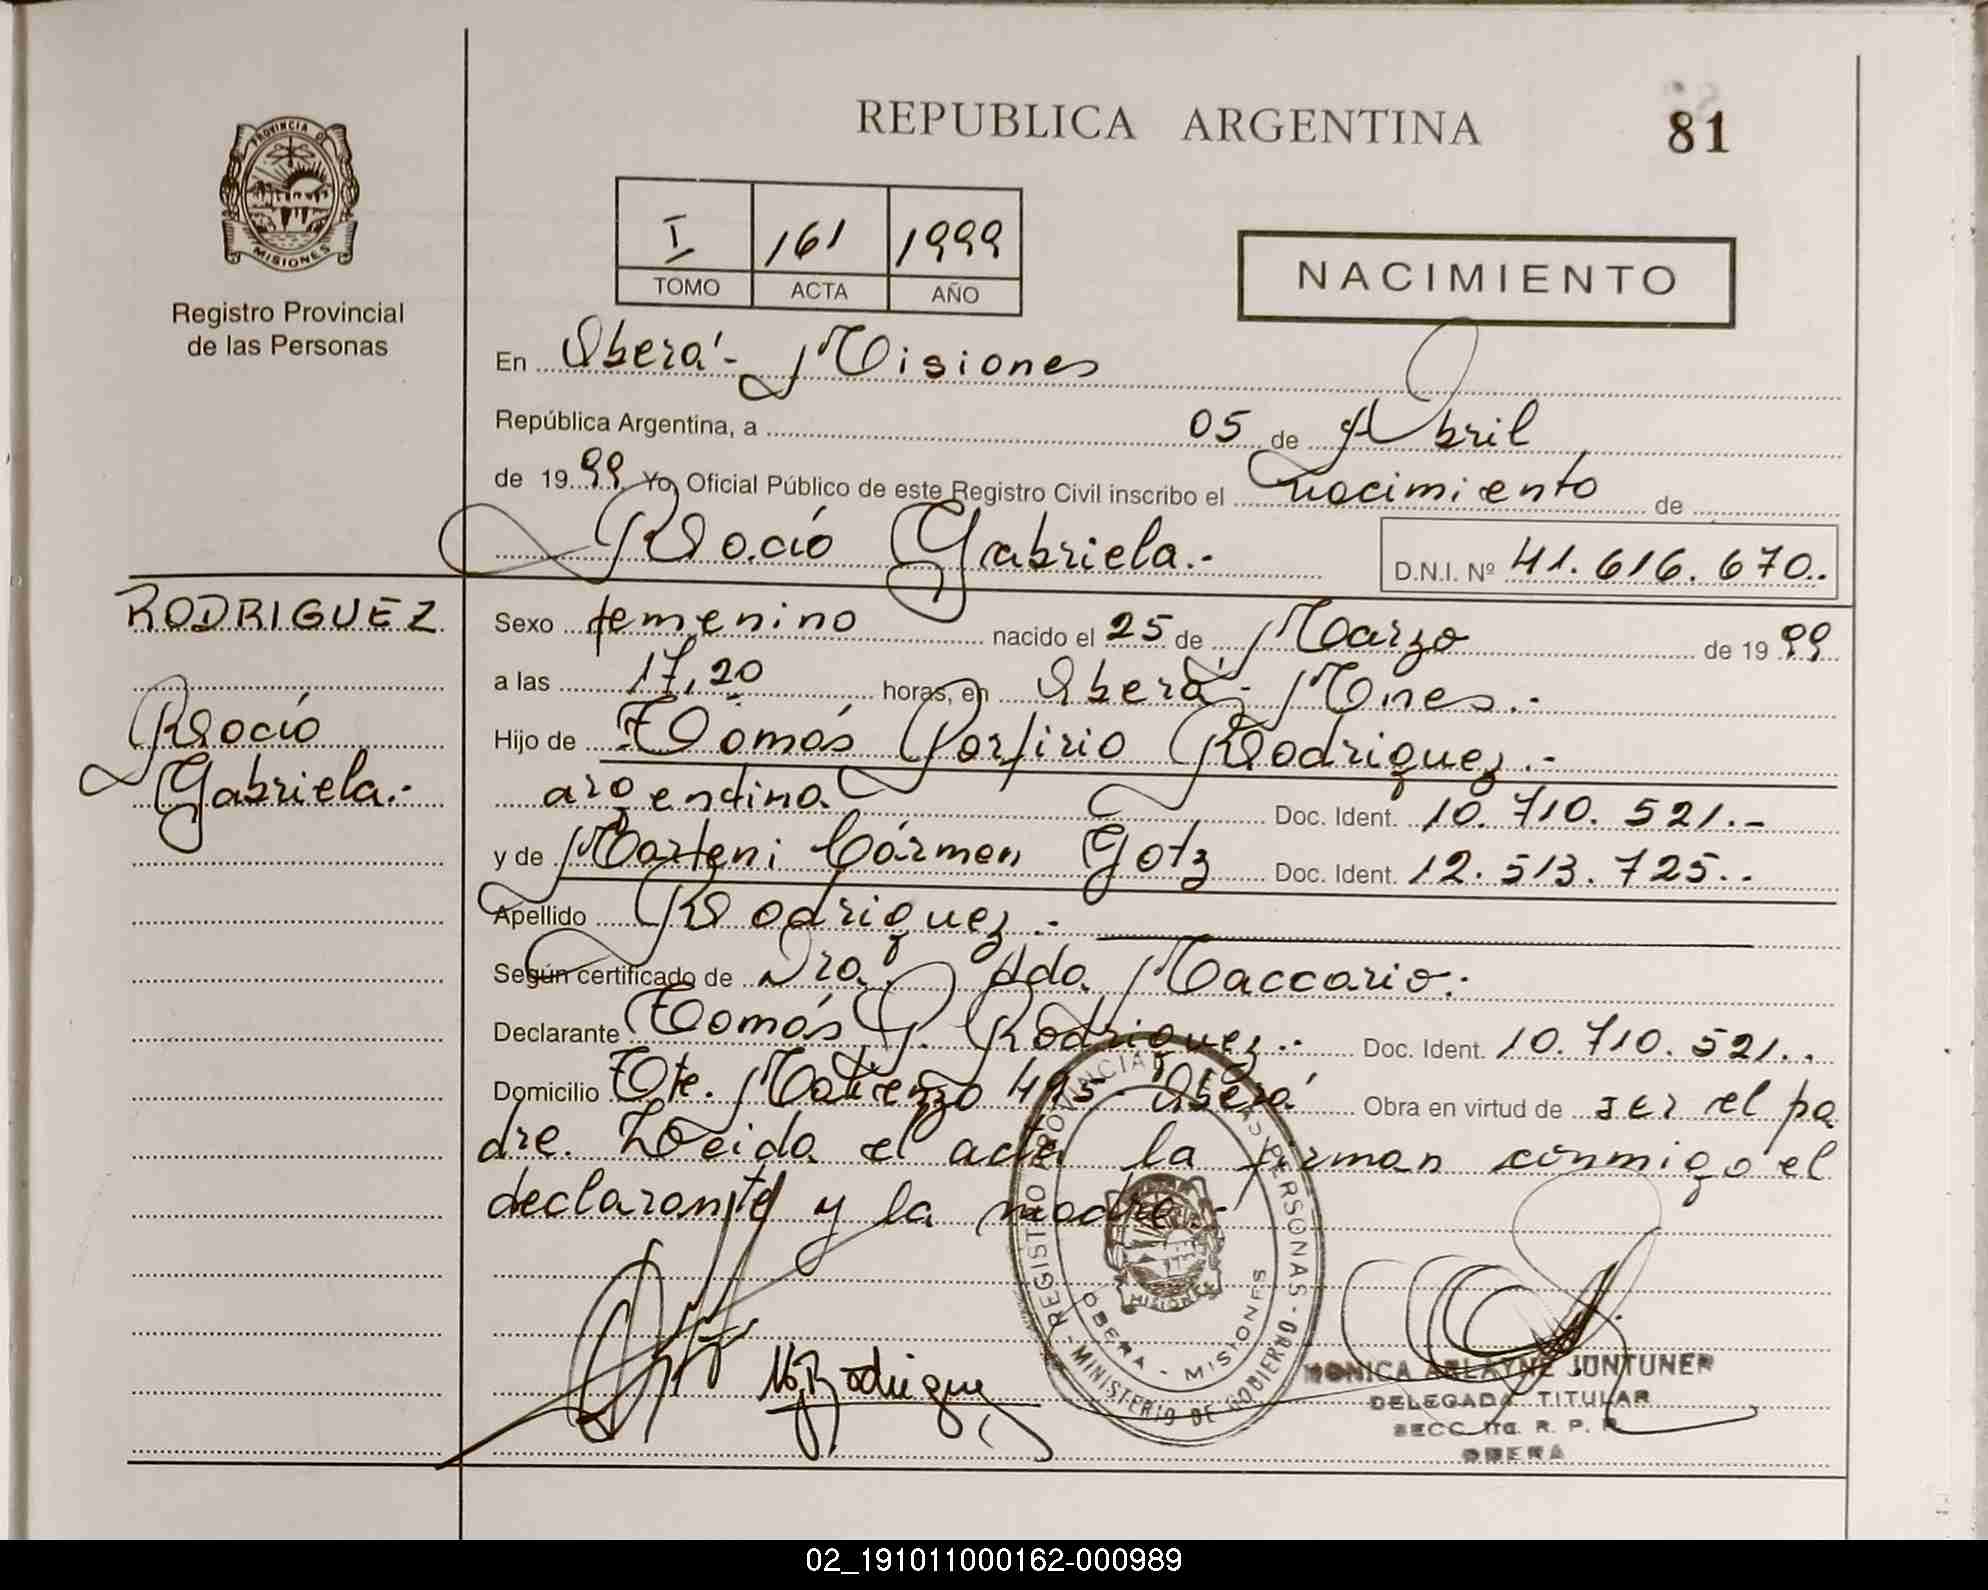 REPUBLICA ARGENTINA
81
PROVINCIA DE
MISIONES
Registro Provincial
de las Personas
I 161 1999
TOMO ACTA AÑO
NACIMIENTO
En Oberá - Misiones
República Argentina, a 05 de Abril
de 1999 Yo, Oficial Público de este Registro Civil inscribo el nacimiento de
Rocío Gabriela.-
D.N.I. Nº 41.616.670..
RODRIGUEZ
Rocío
Gabriela.-
Sexo femenino nacido el 25 de Marzo de 1999
a las 17,20 horas, en Oberá - Mnes.-
Hijo de Tomás Porfirio Rodriguez.-
argentino Doc. Ident. 10.710.521.-
y de Marteni Cármen Gotz Doc. Ident. 12.513.725..
Apellido Rodriguez.-
Según certificado de Dra. Ada Maccario.-
Declarante Tomás P. Rodriguez.- Doc. Ident. 10.710.521..
Domicilio Tte. Matienzo 495 Oberá Obra en virtud de ser el pa
dre. Leida el acta la firman conmigo el
declarante y la madre.-
REGISTRO PROVINCIAL DE LAS PERSONAS - MINISTERIO DE GOBIERNO
MISIONES
OBERA - MISIONES
Rodriguez
MONICA ARLAYNE JUNTUNER
DELEGADA TITULAR
SECC. R. P. P.
OBERA
02_191011000162-000989